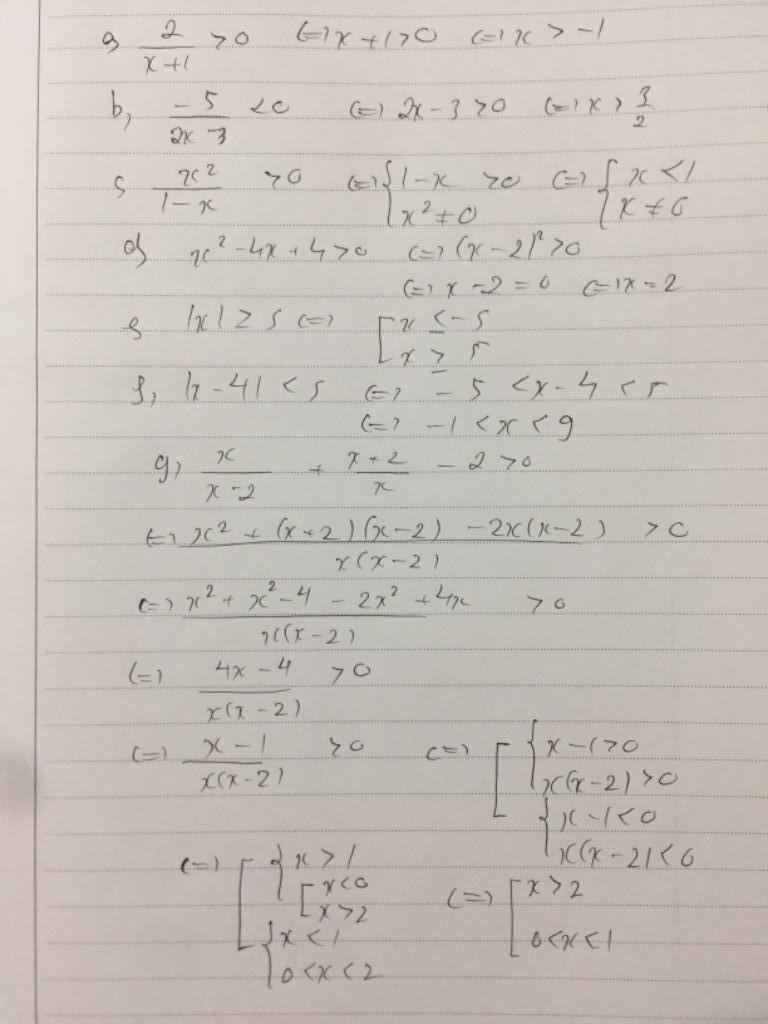 a, 2/(x+1) > 0 (=) x+1 > 0 (=) x > -1
b, -5/(2x-3) < 0 (=) 2x-3 > 0 (=) x > 3/2
c, x²/(1-x) > 0 (=) { 1-x > 0 (=) { x < 1
x² ≠ 0 x ≠ 0
d, x² - 4x + 4 > 0 (=) (x-2)² > 0
(=) x - 2 = 0 (=) x = 2
e, |x| ≥ 5 (=) [ x ≤ -5
x ≥ 5
f, |x-4| < 5 (=) -5 < x-4 < 5
(=) -1 < x < 9
g, x/(x-2) + (x+2)/x - 2 > 0
(=) (x² + (x+2)(x-2) - 2x(x-2))/(x(x-2)) > 0
(=) (x² + x² - 4 - 2x² + 4x)/(x(x-2)) > 0
(=) (4x-4)/(x(x-2)) > 0
(=) (x-1)/(x(x-2)) > 0 (=) [ { x-1 > 0
x(x-2) > 0
{ x-1 < 0
x(x-2) < 0
(=) [ { x > 1
[ x < 0 (=) [ x > 2
x > 2
{ x < 1 0 < x < 1
0 < x < 2